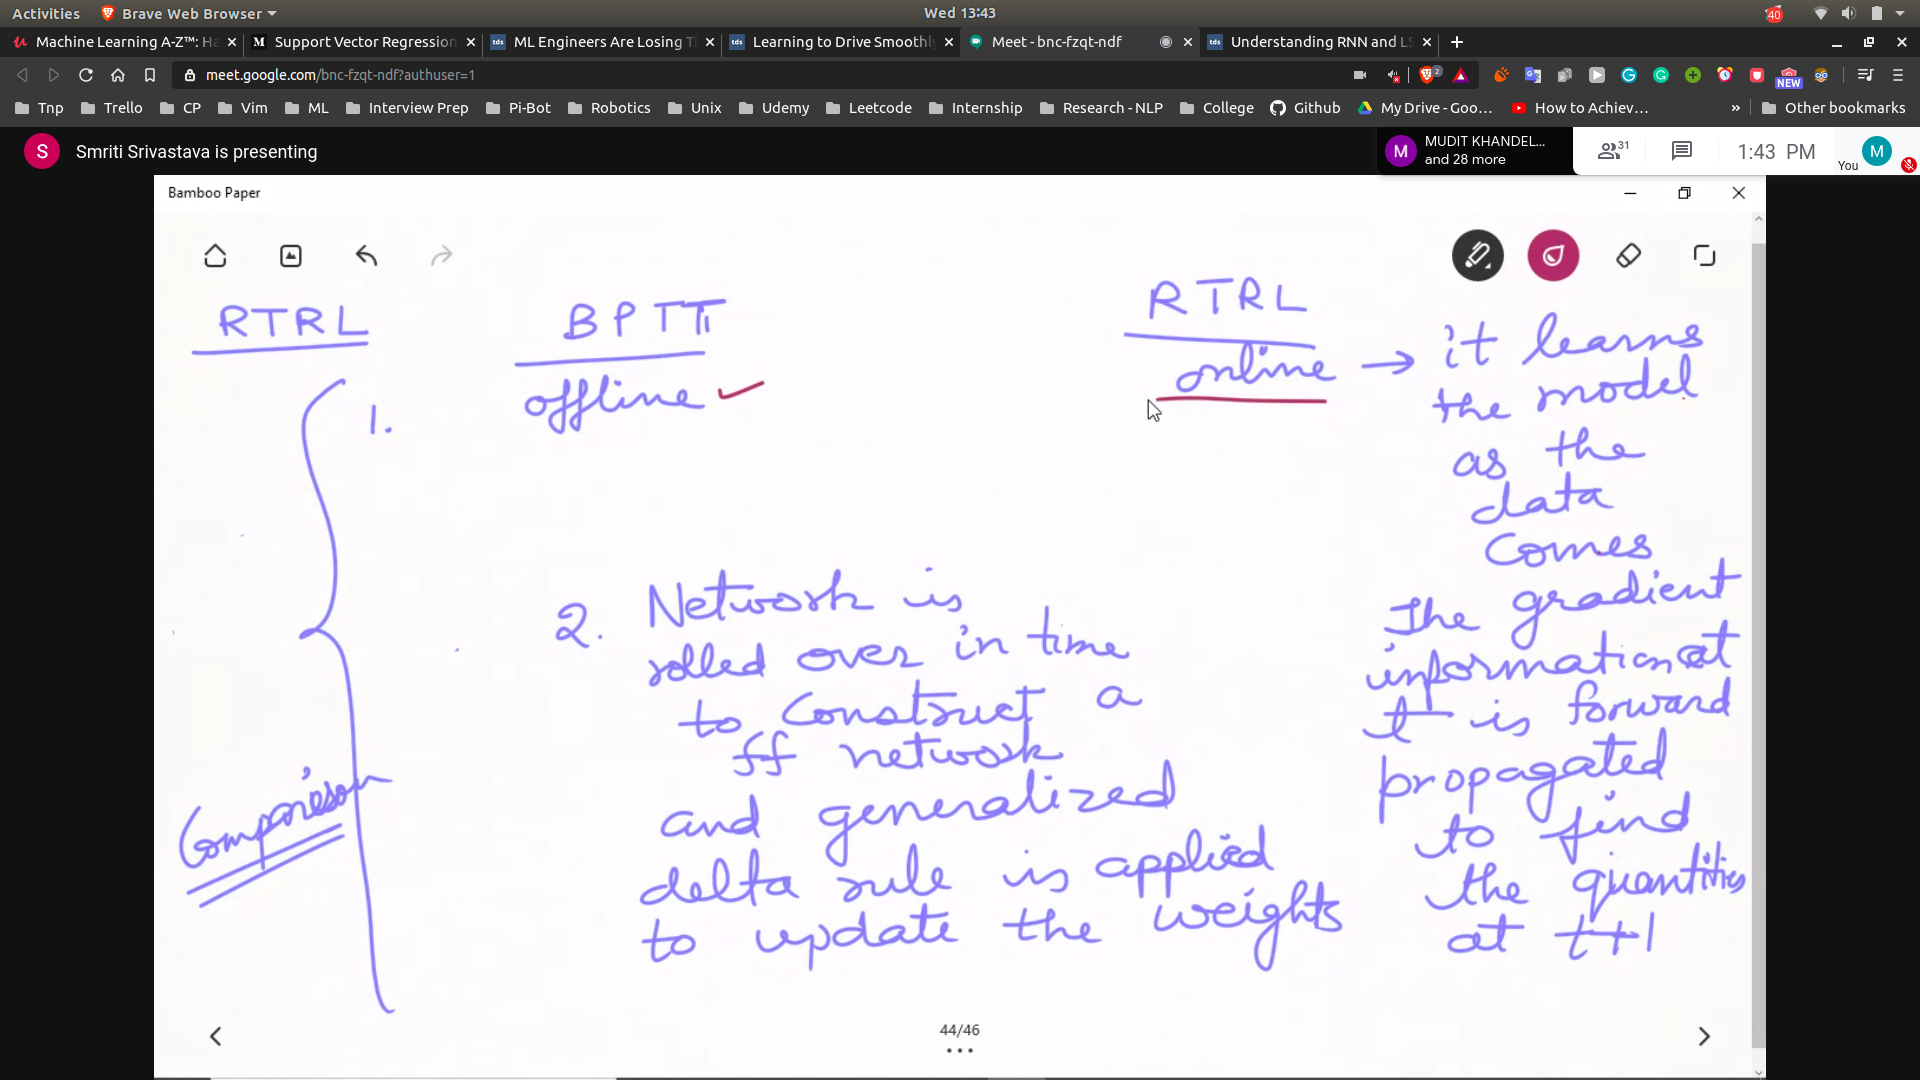 Activities
Brave Web Browser
Wed 13:43
40
Machine Learning A-Z™: Ha
Support Vector Regression
ML Engineers Are Losing T
Learning to Drive Smoothly
Meet - bnc-fzqt-ndf
Understanding RNN and LS
meet.google.com/bnc-fzqt-ndf?authuser=1
2
NEW
Tnp
Trello
CP
Vim
ML
Interview Prep
Pi-Bot
Robotics
Unix
Udemy
Leetcode
Internship
Research - NLP
College
Github
My Drive - Goo...
How to Achiev...
»
Other bookmarks
S
Smriti Srivastava is presenting
M
MUDIT KHANDEL...
and 28 more
31
1:43 PM
You
M
Bamboo Paper
RTRL
BPTT
RTRL
1.
offline
online → it learns
the model
as the
data
comes
2. Network is
rolled over in time
to construct a
ff network
and generalized
delta rule is applied
to update the weights
The gradient
information at
t is forward
propagated
to find
the quantities
at t+1
Comparison
44/46